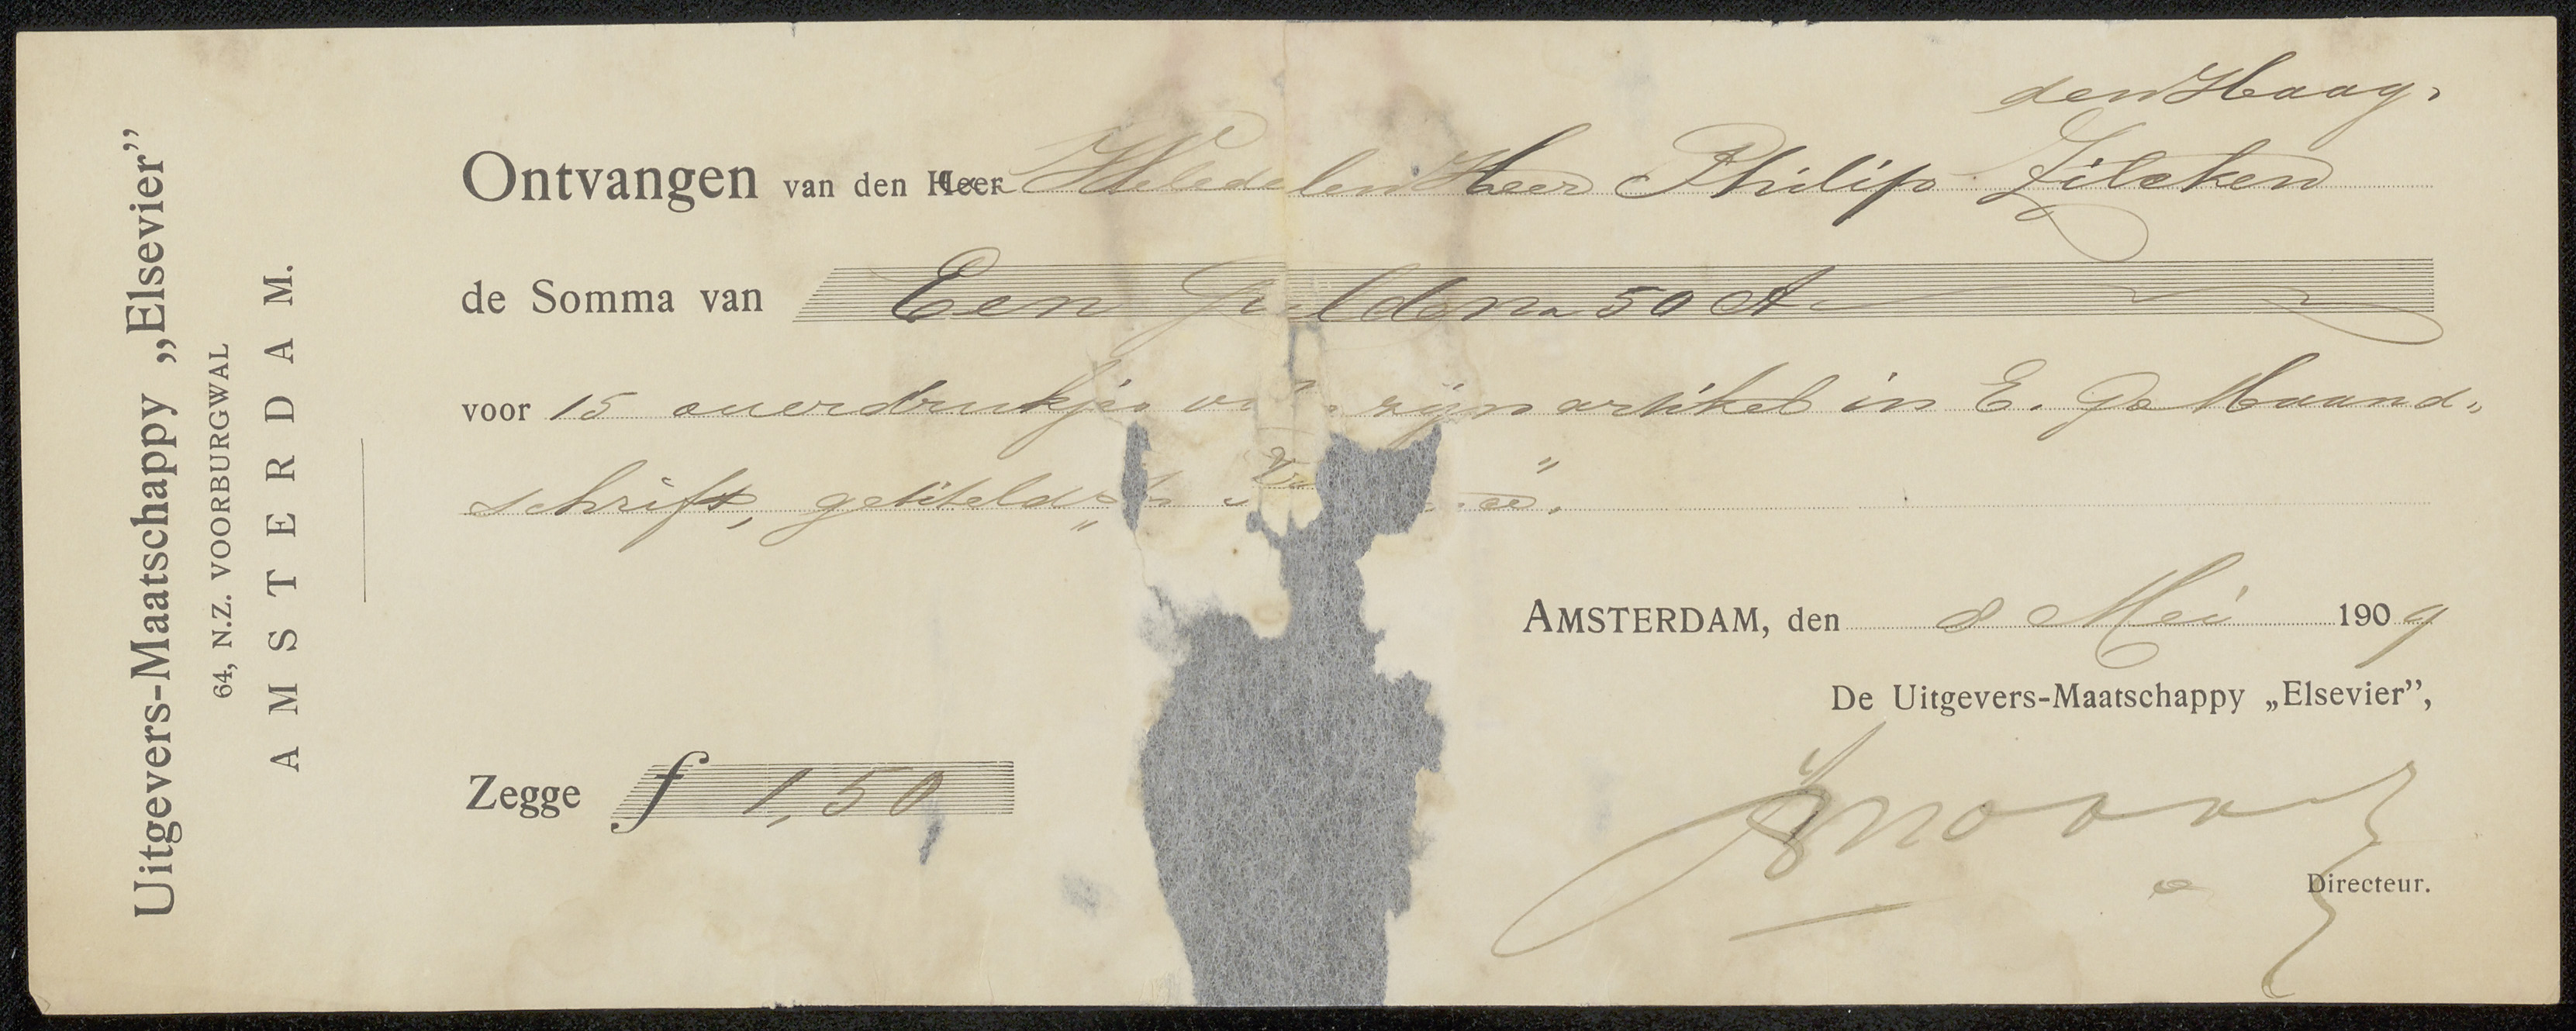 Uitgevers-Maatschappy „Elsevier”
64, N.Z. VOORBURGWAL
AMSTERDAM.
den Haag.
Ontvangen van den Heer Weledelen Heer Philip Zilcken
de Somma van Een Gulden 50 Ct
voor 15 overdrukjes van zijn artikel in E. Ge Maand„
schrift, getiteld „
AMSTERDAM, den 8 Mei 1909
De Uitgevers-Maatschappy „Elsevier”,
Zegge f 1,50
Directeur.